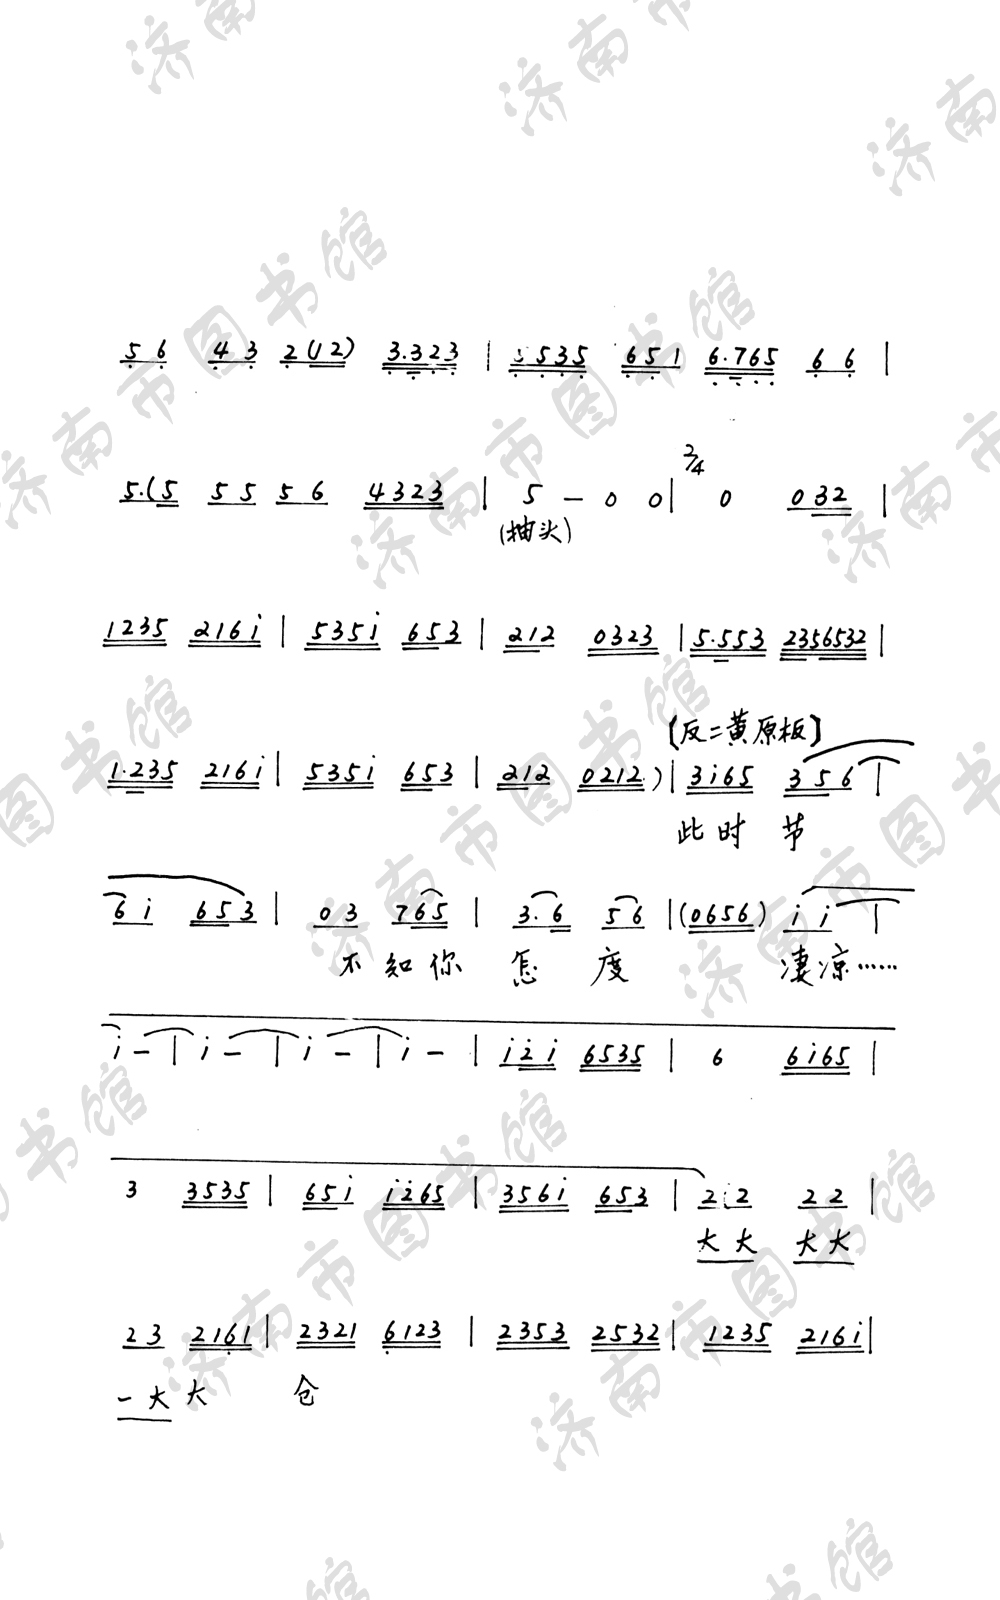 5 6 4 3 2(12) 3.323 | 3535 651 6.765 6 6 |
5.(5 5 5 5 6 4323 | 5 - 0 0 | 2/4 0 032 |
(抽头)
1235 216i | 535i 653 | 212 0323 | 5.553 2356532 |
[反二黄原板]
1.235 216i | 535i 653 | 212 0212) | 3i65 356 |
此时 节
6i 653 | 03 765 | 3.6 56 | (0656) i i |
不知你 怎 度 凄凉……
i - | i - | i - | i - | i2i 6535 | 6 6i65 |
3 3535 | 65i i265 | 356i 653 | 2 2 2 2 |
大大 大大
23 2161 | 2321 6123 | 2353 2532 | 1235 216i |
一大大 仓
济南市图书馆
济南市图书馆
济南市图书馆
济南市图书馆
济南市图书馆
济南市图书馆